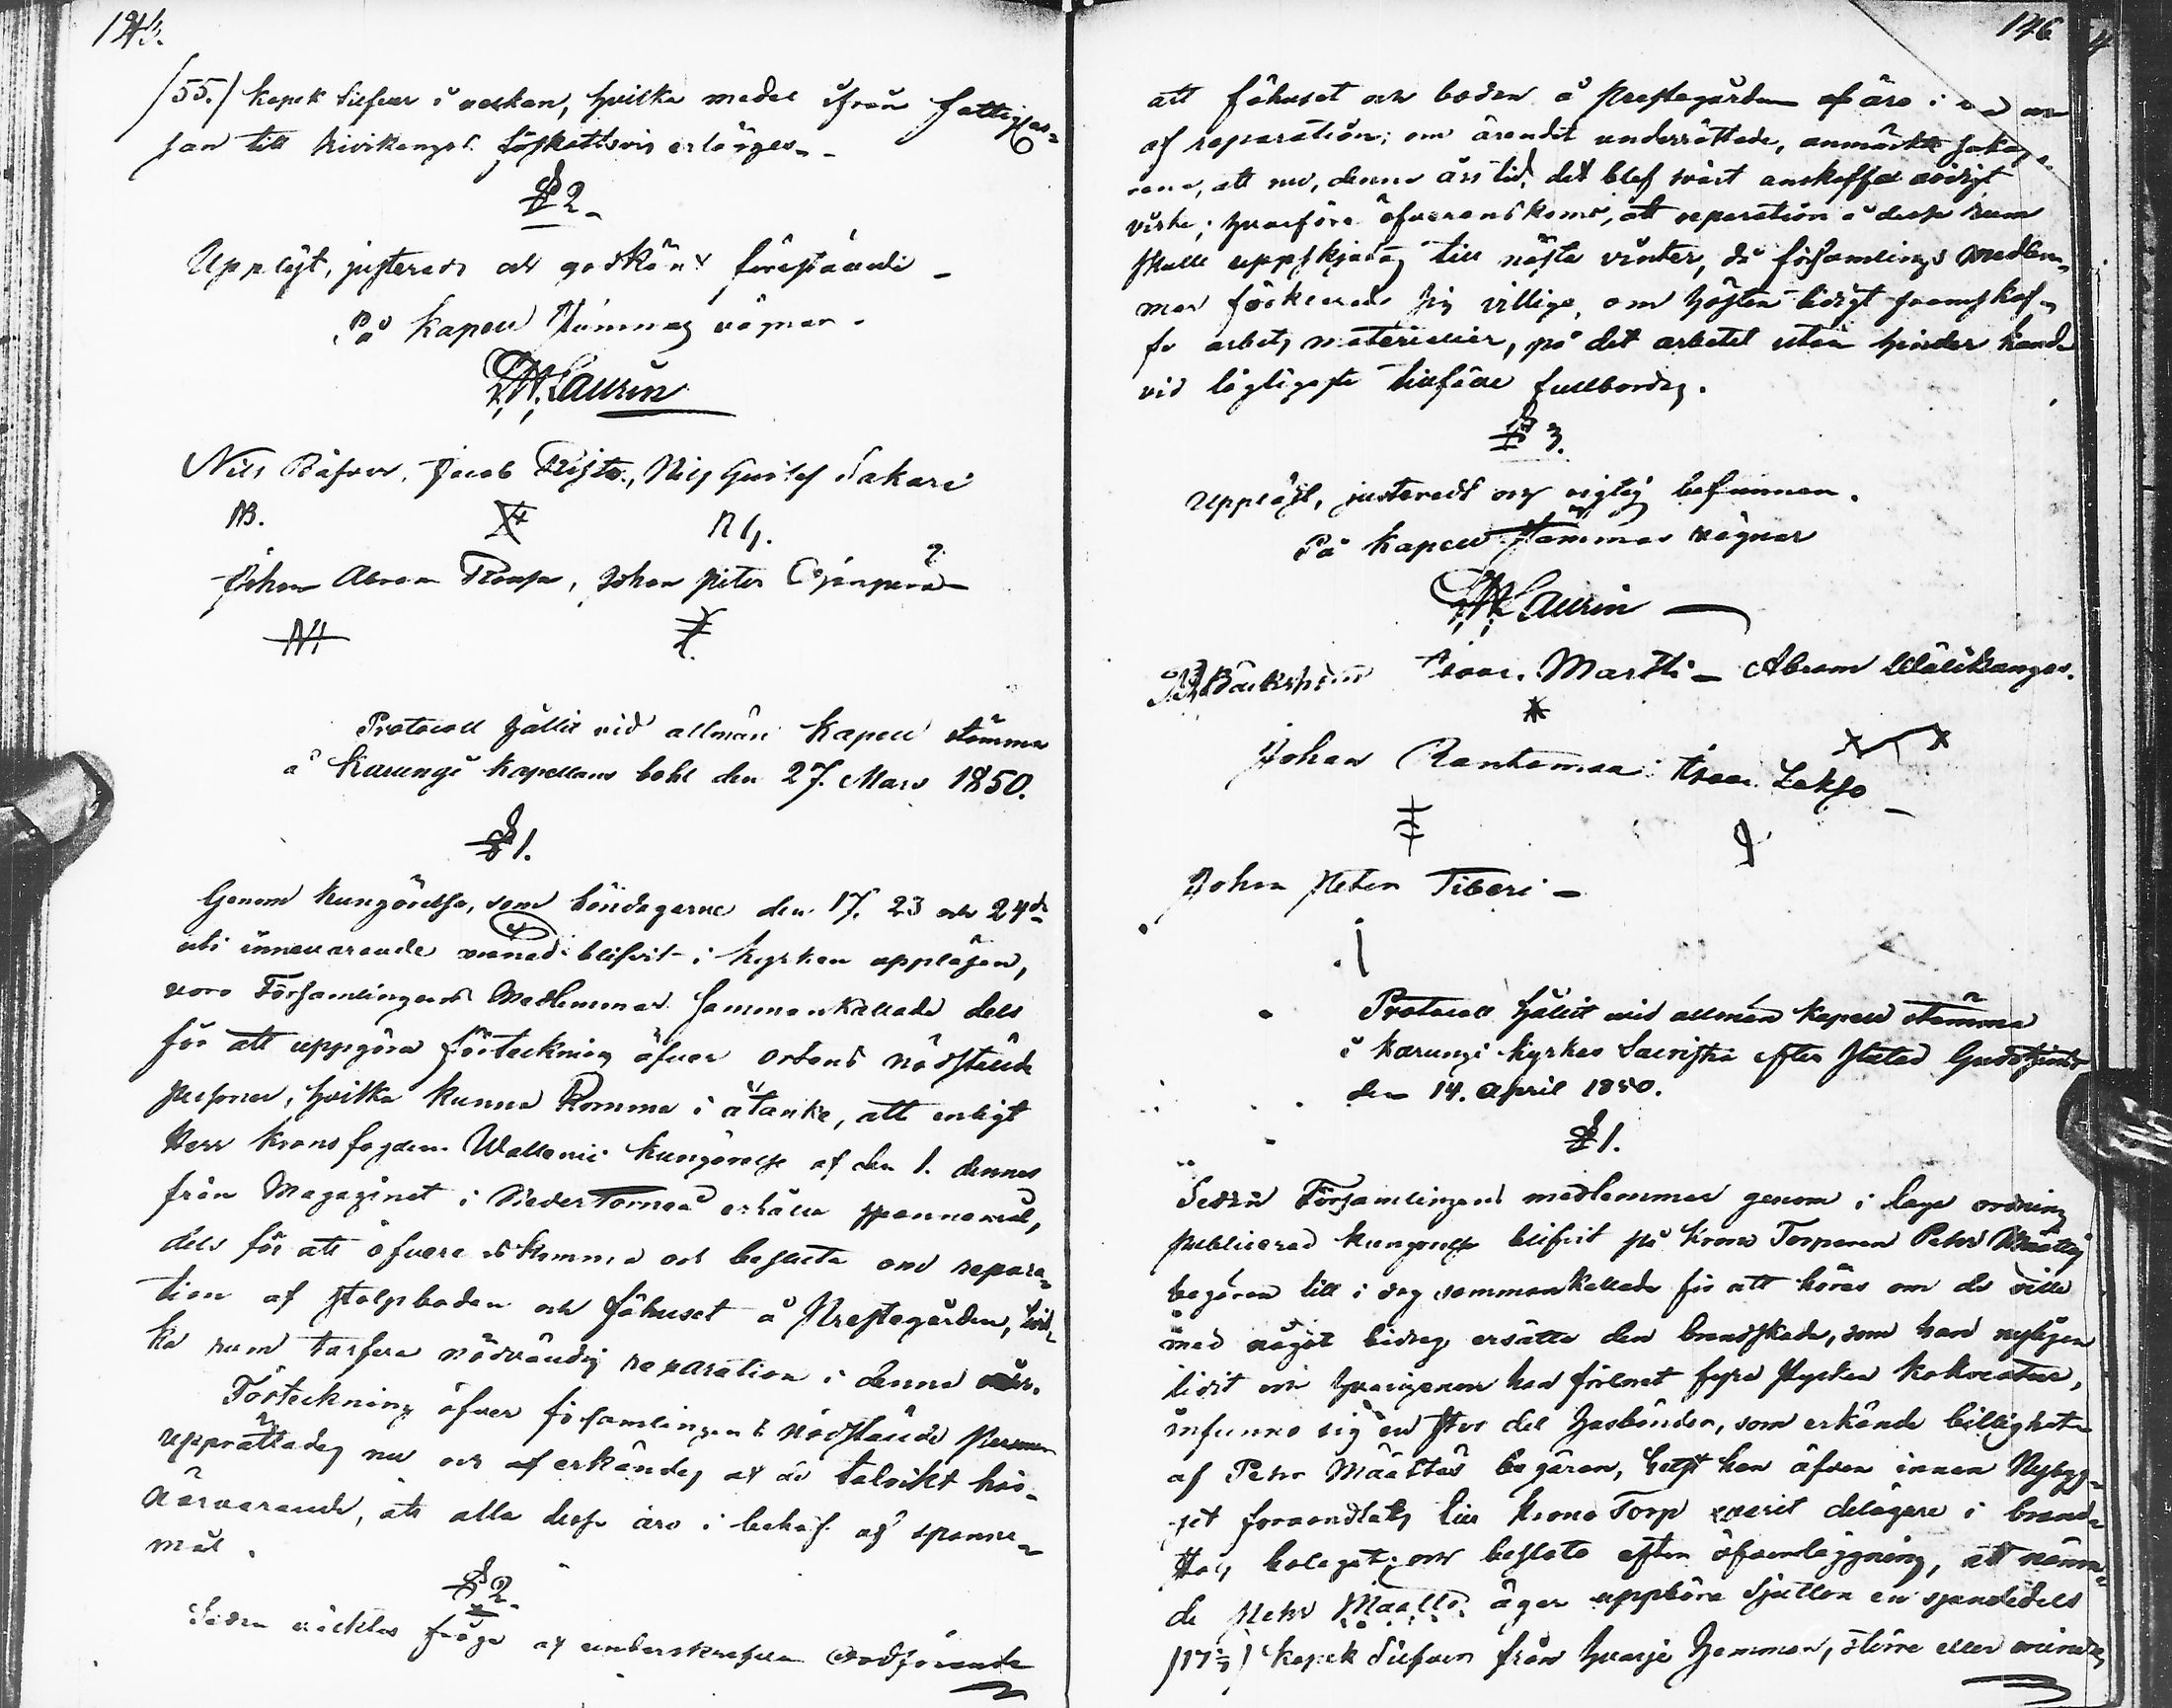 145.
/55./ kopek Silfver i veckan, hvilka medel ifrån fattigcas-
san till Kivikangas förskottsvis erlägges.
§ 2.
Uppläst, justeradt och godkändt förestående
På Kapell Stämmas vägnar.
Laurin
Nils Jacob Risto, Nils Gustaf Sakari
NB. N G.
Johan Abram Johan Peter
Protocoll hållit vid allmän Kapell stämma
å Karungi Kapellans bohl den 27. Mars 1850.
§ 1.
Genom kungörelse, som böndagarne den 17. 23 och 24de
uti innevarande månad blifvit i kyrkan uppläsen,
voro Församlingens Medlemmar sammankallade dels
för att uppgöra förteckning öfver ortens nödstälde
personer, hvilka kunna komma i åtanke, att enligt
Herr Kronofogden Wallenii kungörelse af den 1. dennes
från Magazinet i Neder Torneå erhålla spannemål,
dels för att öfverenskomma och besluta om repara-
tion af stolpboden och fähuset å Prestegården, hvil-
ka rum tarfva nödvändig reparation i denna vår.
Förteckning öfver församlingens nödstälde Personer
upprättades nu och erkändes af de talrikt här-
närvarande, att alla desse äro i behof af spanne-
mål.
§ 2.
Sedan väcktes fråga af underskrefven Ordförande
146
att fähuset och boden å Prestegården äro i
af reparation; om ärendet underrättade, anmärkte
att nu, denna års tid, det blef svårt anskaffa
virke; hvarföre öfverenskoms, att reparation å desse rum
skulle uppskjutas till nästa vinter, då församlings medlem-
mar förklarade sig villiga, om hösten tidigt framskaf-
fa arbets materialier, på det arbetet utan hinder kunde
vid lägligaste tillfälle fullbordas.
§ 3.
Uppläst, justeradt och rigtig befunnen.
På Kapell Stämmas vägnar
Laurin
Bäckström Isaac Martti Abram Välikangas.
Johan Rantamaa Isaac Lakso
Johan Peter Tiberi
Protocoll hållit vid allmän Kapell stämma
i Karungi Kyrkas Sacristia efter slutad Gudstjenst
den 14. April 1850.
§ 1.
Sedan Församlingens medlemmar genom i laga ordning
publicerad kungörelse blifvit på Krono Torparen Pehr Määttäs
begäran till i dag sammankallade för att höras om de ville
med något bidrag ersätta den brandskada, som han nyligen
lidit och hvarigenom han förlorat fyra stycken
infunno sig en stor del hasbönder, som erkände billigheten
af Pehr Määttäs begäran, helst han äfven innan Nybyg-
get förvandlats till Krono Torp varit delägare i brand-
stods bolaget; och beslöto efter öfverläggning, att nämn-
de Pehr Määttä äger uppbära Sjutton en sjundedels
/17 1/7/ kopek Silfver från hvarje Hemman, större eller mindre